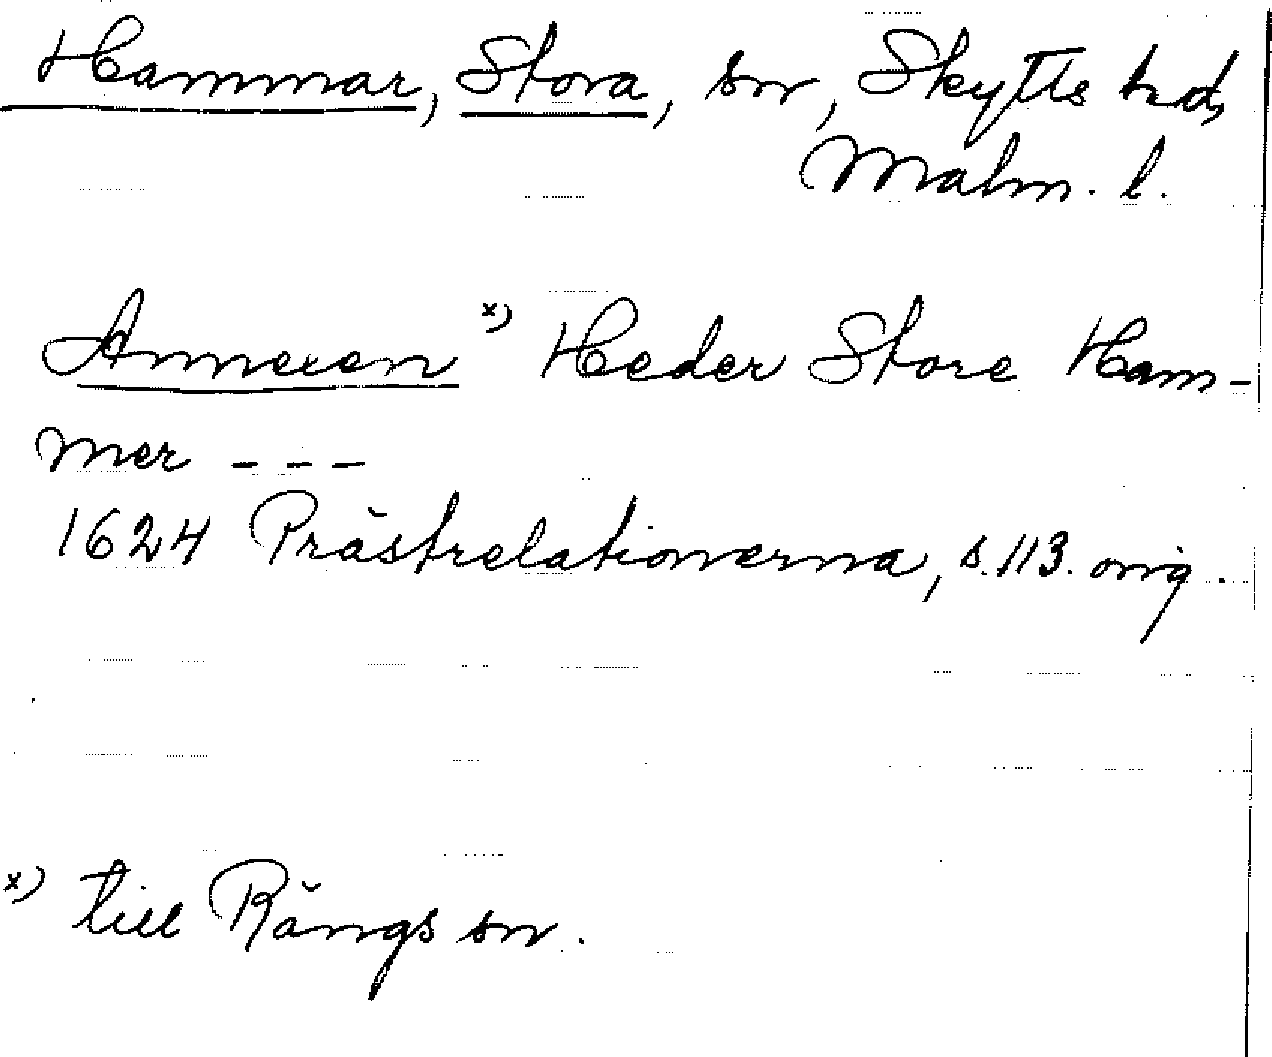 Hammar, Stora, sn, Skytts hd,
Malm. l.
Annexen x) Heder Store Ham-
mer - - -
1624 Prästrelationerna, s. 113. orig.
x) till Rängs sn.